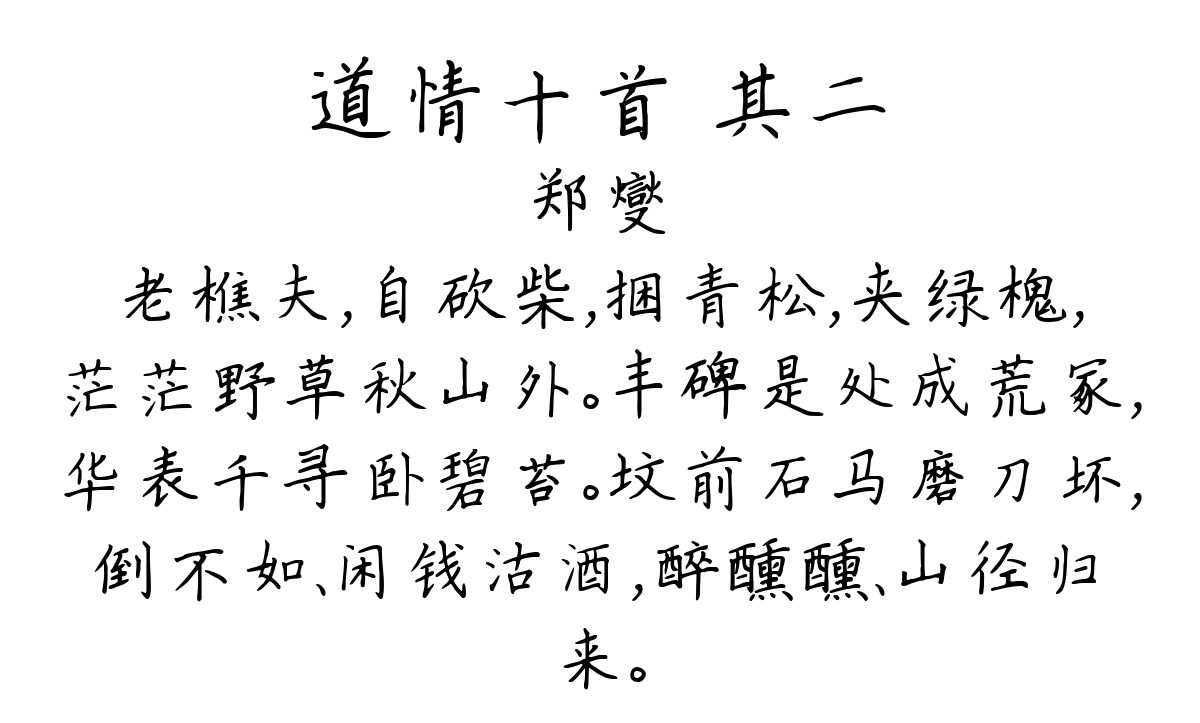 道情十首 其二
郑燮
老樵夫,自砍柴,捆青松,夹绿槐,
茫茫野草秋山外。丰碑是处成荒冢,
华表千寻卧碧苔。坟前石马磨刀坏,
倒不如、闲钱沽酒,醉醺醺、山径归
来。